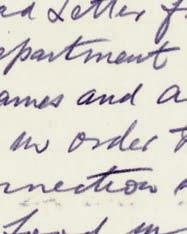 ad Letter f
epartment
ames and a
in order t
nnection